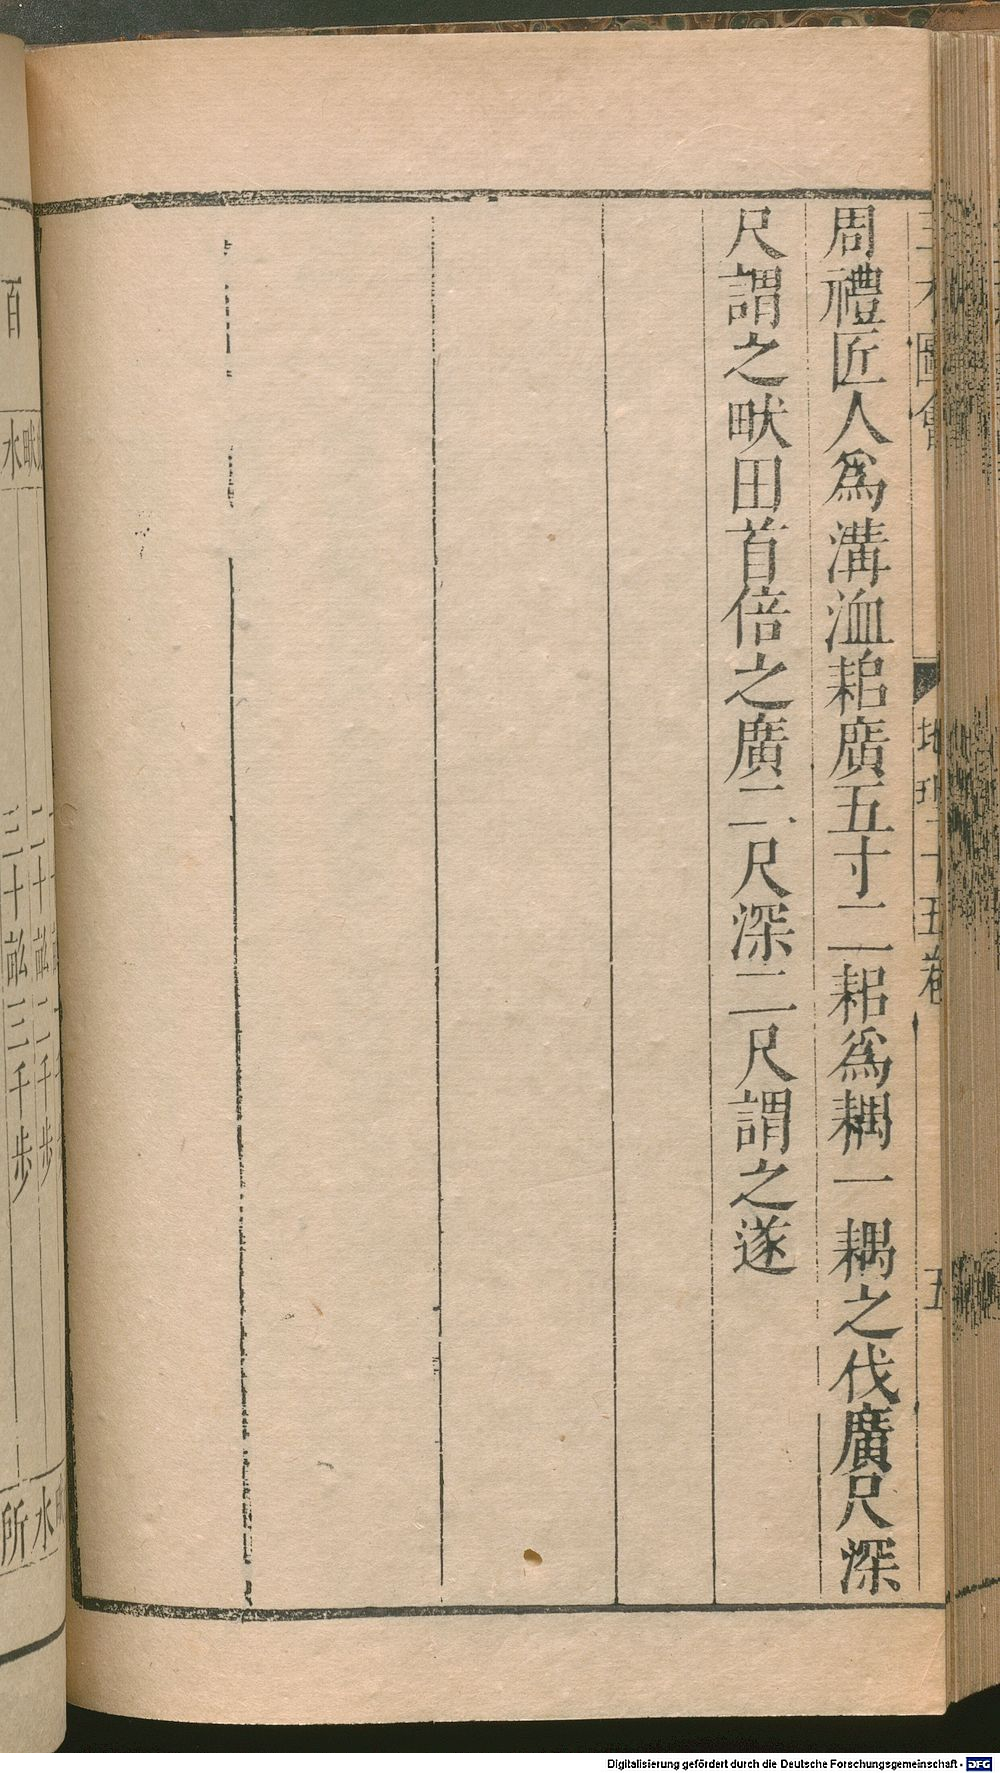 周禮匠人爲溝洫耜廣五寸二耜爲耦一耦之伐廣尺深
尺謂之畎田首倍之廣二尺深二尺謂之遂
百
畎
水
二十畝二千步
三十畝三千步
水
所
圖會
地理十五卷
五
Digitalisierung gefördert durch die Deutsche Forschungsgemeinschaft - DFG